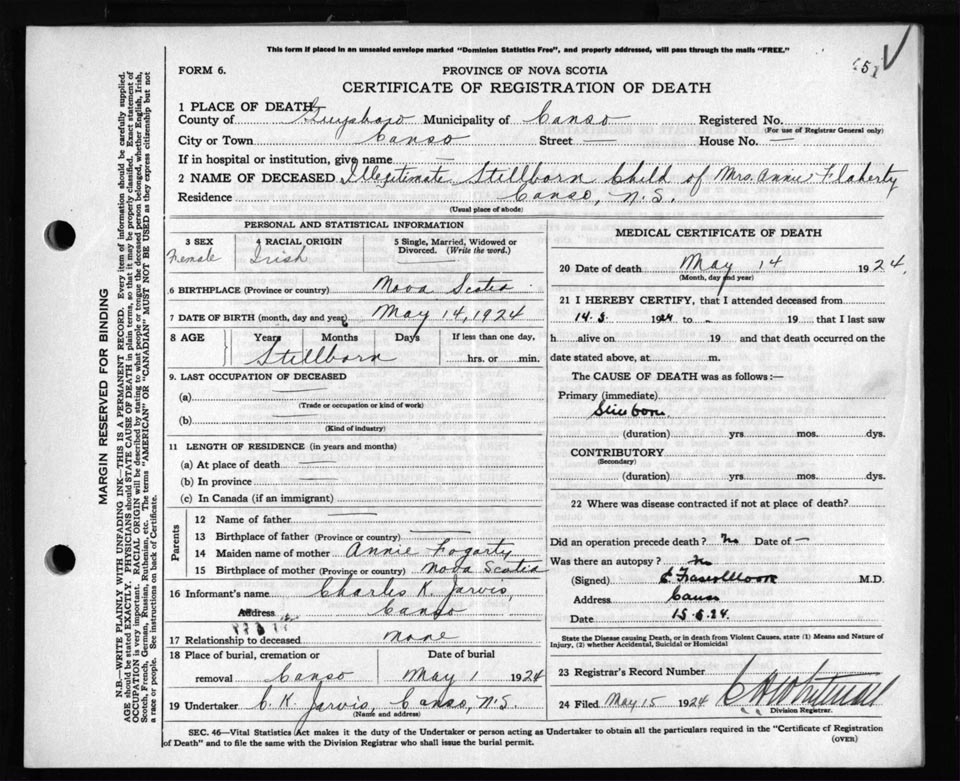 This form if placed in an unsealed envelope marked "Dominion Statistics Free", and properly addressed, will pass through the mails "FREE."
FORM 6.
PROVINCE OF NOVA SCOTIA
CERTIFICATE OF REGISTRATION OF DEATH
1 PLACE OF DEATH
County of Guysboro Municipality of Canso Registered No.
(For use of Registrar General only)
City or Town Canso Street — House No. —
If in hospital or institution, give name —
2 NAME OF DECEASED Illegitimate Stillborn Child of Mrs. Annie Flaherty
Residence Canso, N.S.
(Usual place of abode)
PERSONAL AND STATISTICAL INFORMATION
3 SEX 4 RACIAL ORIGIN 5 Single, Married, Widowed or Divorced. (Write the word.)
Female Irish —
6 BIRTHPLACE (Province or country) Nova Scotia
7 DATE OF BIRTH (month, day and year) May 14, 1924
8 AGE Years Months Days If less than one day,
Stillborn hrs. or min.
9. LAST OCCUPATION OF DECEASED
(a) —
(Trade or occupation or kind of work)
(b) —
(Kind of industry)
11 LENGTH OF RESIDENCE (in years and months)
(a) At place of death —
(b) In province —
(c) In Canada (if an immigrant)
Parents
12 Name of father —
13 Birthplace of father (Province or country) —
14 Maiden name of mother Annie Fogarty
15 Birthplace of mother (Province or country) Nova Scotia
16 Informant's name Charles K. Jarvis,
Address Canso
17 Relationship to deceased None
18 Place of burial, cremation or removal Canso Date of burial May 1 1924
19 Undertaker C. K. Jarvis, Canso, N.S.
(Name and address)
MEDICAL CERTIFICATE OF DEATH
20 Date of death May 14 1924.
(Month, day and year)
21 I HEREBY CERTIFY, that I attended deceased from
14.5 1924 to - 19 that I last saw
h alive on 19 and that death occurred on the
date stated above, at m.
The CAUSE OF DEATH was as follows:—
Primary (immediate)
Stillborn
(duration) yrs. mos. dys.
CONTRIBUTORY
(Secondary)
(duration) yrs. mos. dys.
22 Where was disease contracted if not at place of death?
Did an operation precede death? No Date of —
Was there an autopsy? No
(Signed) M.D.
Address Canso
Date 15.5.24.
State the Disease causing Death, or in death from Violent Causes, state (1) Means and Nature of
Injury, (2) whether Accidental, Suicidal or Homicidal
23 Registrar's Record Number
24 Filed May 15 1924
Division Registrar.
SEC. 46—Vital Statistics Act makes it the duty of the Undertaker or person acting as Undertaker to obtain all the particulars required in the "Certificate of Registration
of Death" and to file the same with the Division Registrar who shall issue the burial permit.
(OVER)
MARGIN RESERVED FOR BINDING
N.B.—WRITE PLAINLY WITH UNFADING INK—THIS IS A PERMANENT RECORD. Every item of information should be carefully supplied.
AGE should be stated EXACTLY. PHYSICIANS should STATE CAUSE OF DEATH in plain terms, so that it may be properly classified. Exact statement of
OCCUPATION is very important. RACIAL ORIGIN will be described by stating to what people or tongue the deceased person belonged, whether English, Irish,
Scotch, French, German, Russian, Ruthenian, etc. The terms "AMERICAN" or "CANADIAN" MUST NOT BE USED as they express citizenship but not
a race or people. See instructions on back of Certificate.